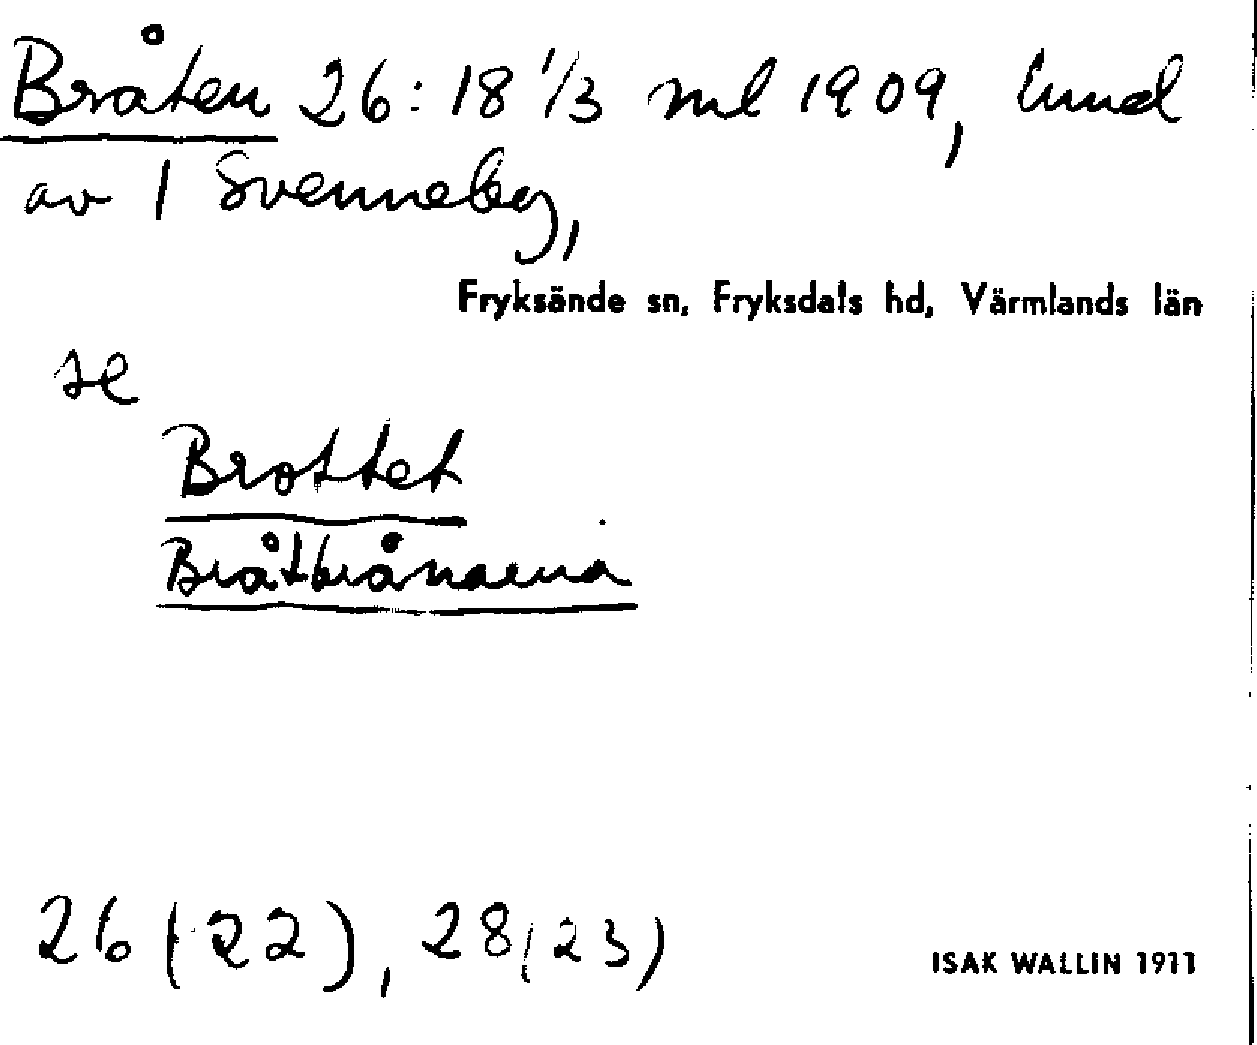 Bråten 26:18 1/3 ml 1909, lund
av 1 Svenneby,
Fryksände sn, Fryksdals hd, Värmlands län
se
Brottet
Bråtbrånarna
26 (22), 28(23)
ISAK WALLIN 1911